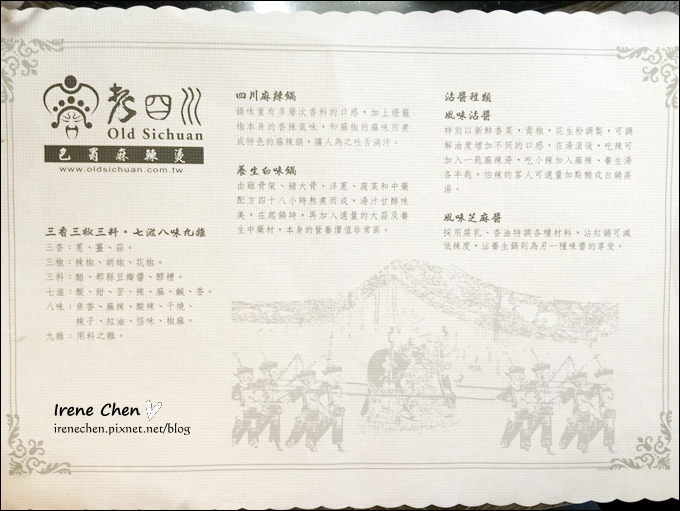 老四川
Old Sichuan
巴蜀麻辣燙
www.oldsichuan.com.tw
三香三椒三料，七滋八味九雜
三香：蔥、薑、蒜。
三椒：辣椒、胡椒、花椒。
三料：醋、郫縣豆瓣醬、醪糟。
七滋：酸、甜、苦、辣、麻、鹹、香。
八味：魚香、麻辣、酸辣、干燒、
辣子、紅油、怪味、椒麻。
九雜：用料之雜。
四川麻辣鍋
鍋味重有多層次香料的口感，加上燈籠
椒本身的香辣氣味，和麻椒的麻味而煮
成特色的麻辣鍋，讓人為之吐舌淌汗。
養生白味鍋
由雞骨架、豬大骨、洋蔥、蔬菜和中藥
配方四十八小時熬煮而成，湯汁甘醇味
美，在起鍋時，再加入適量的大蒜及養
生中藥材，本身的營養價值非常高。
沾醬種類
風味沾醬
特別以新鮮香菜，青椒，花生粉調製，可調
解油度增加不同的口感。在湯滾後，吃辣可
加入一匙麻辣湯，吃小辣加入麻辣、養生湯
各半匙，怕辣的客人可適量加點醋或白鍋高
湯。
風味芝麻醬
採用腐乳、香油特調各種材料，沾紅鍋可減
低辣度，沾養生鍋則為另一種味蕾的享受。
Irene Chen
irenechen.pixnet.net/blog